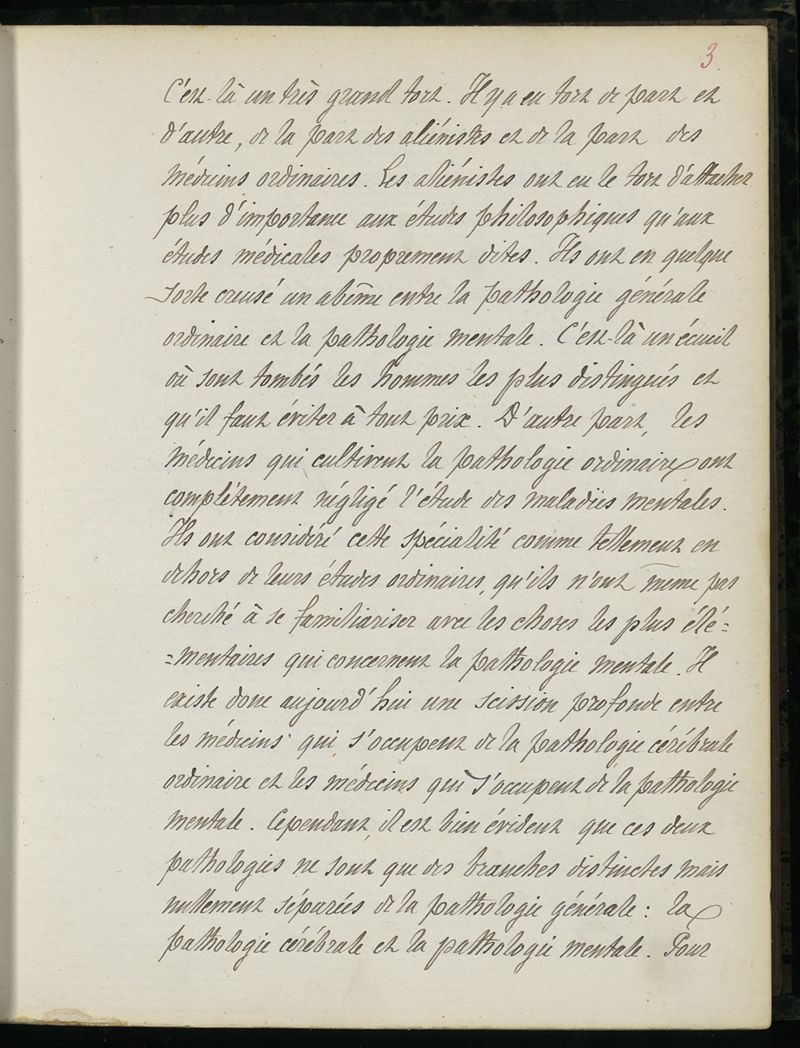 3
C'est là un très grand tort. Il y a eu tort de part et
d'autre, de la part des aliénistes et de la part des
médecins ordinaires. Les aliénistes ont eu le tort d'attacher
plus d'importance aux études philosophiques qu'aux
études médicales proprement dites. Ils ont en quelque
sorte creusé un abîme entre la pathologie générale
ordinaire et la pathologie mentale. C'est là un écueil
où sont tombés les hommes les plus distingués et
qu'il faut éviter à tout prix. D'autre part, les
médecins qui cultivent la pathologie ordinaire ont
complètement négligé l'étude des maladies mentales.
Ils ont considéré cette spécialité comme tellement en
dehors de leurs études ordinaires, qu'ils n'ont même pas
cherché à se familiariser avec les choses les plus élé=
=mentaires qui concernent la pathologie mentale. Il
existe donc aujourd'hui une scission profonde entre
les médecins qui s'occupent de la pathologie cérébrale
ordinaire et les médecins qui s'occupent de la pathologie
mentale. Cependant, il est bien évident que ces deux
pathologies ne sont que des branches distinctes mais
nullement séparées de la pathologie générale : la
pathologie cérébrale et la pathologie mentale. Pour